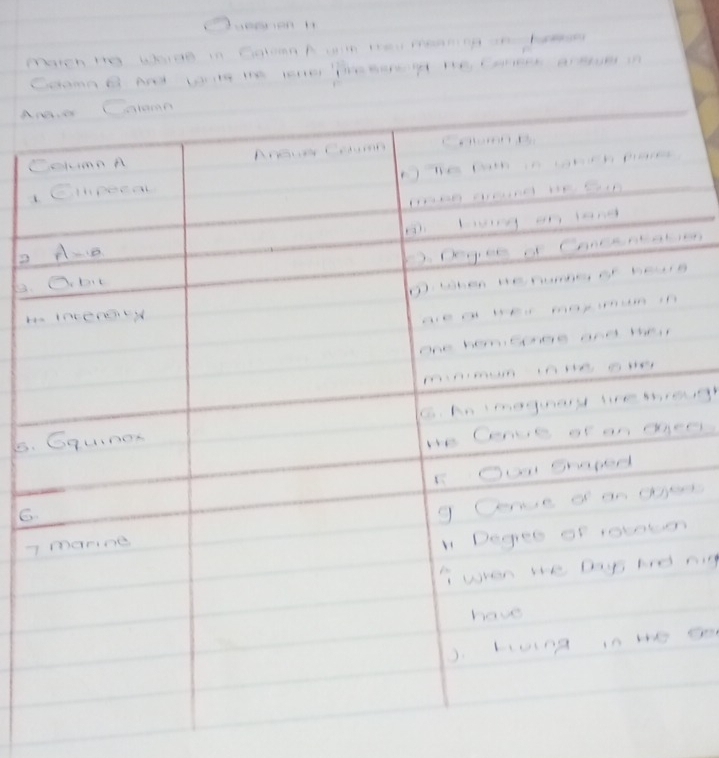 Question 4
Match the words in Column A with their meaning in
Column B And write the letter of the correct answer in
Answer Column
Column A
Answer Column
Column B
1 Ellipecal
A) The Path in which planet
move around the Sun
B). Living on land
2 Axis
C). Degree of Concentration
3. Orbit
D). When the number of hours
are at their maximum in
one hemisphere and their
minimum in the other
Intensity
E. An imaginary line through
the Centre of an object
5. Equinox
F Oval Shaped
6.
g Centre of an object
7 marine
H Degree of rotation
i when the Days And
have
J. Living in the